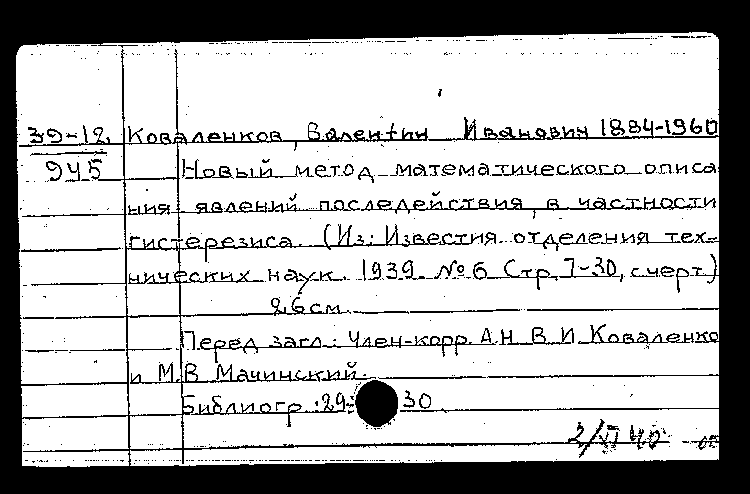 39-12 Коваленков, Валентин Иванович 1884-1960
945 Новый метод математического описа
ния явлений последействия, в частности
гистерезиса. (Из: Известия отделения тех-
нических наук. 1939. №6 Стр. 7-30, с черт.)
26 см.
Перед загл.: Член-корр. А.Н. В.И. Коваленко
и М.В. Мачинский.
Библиогр.: 29-30.
2/VI 40